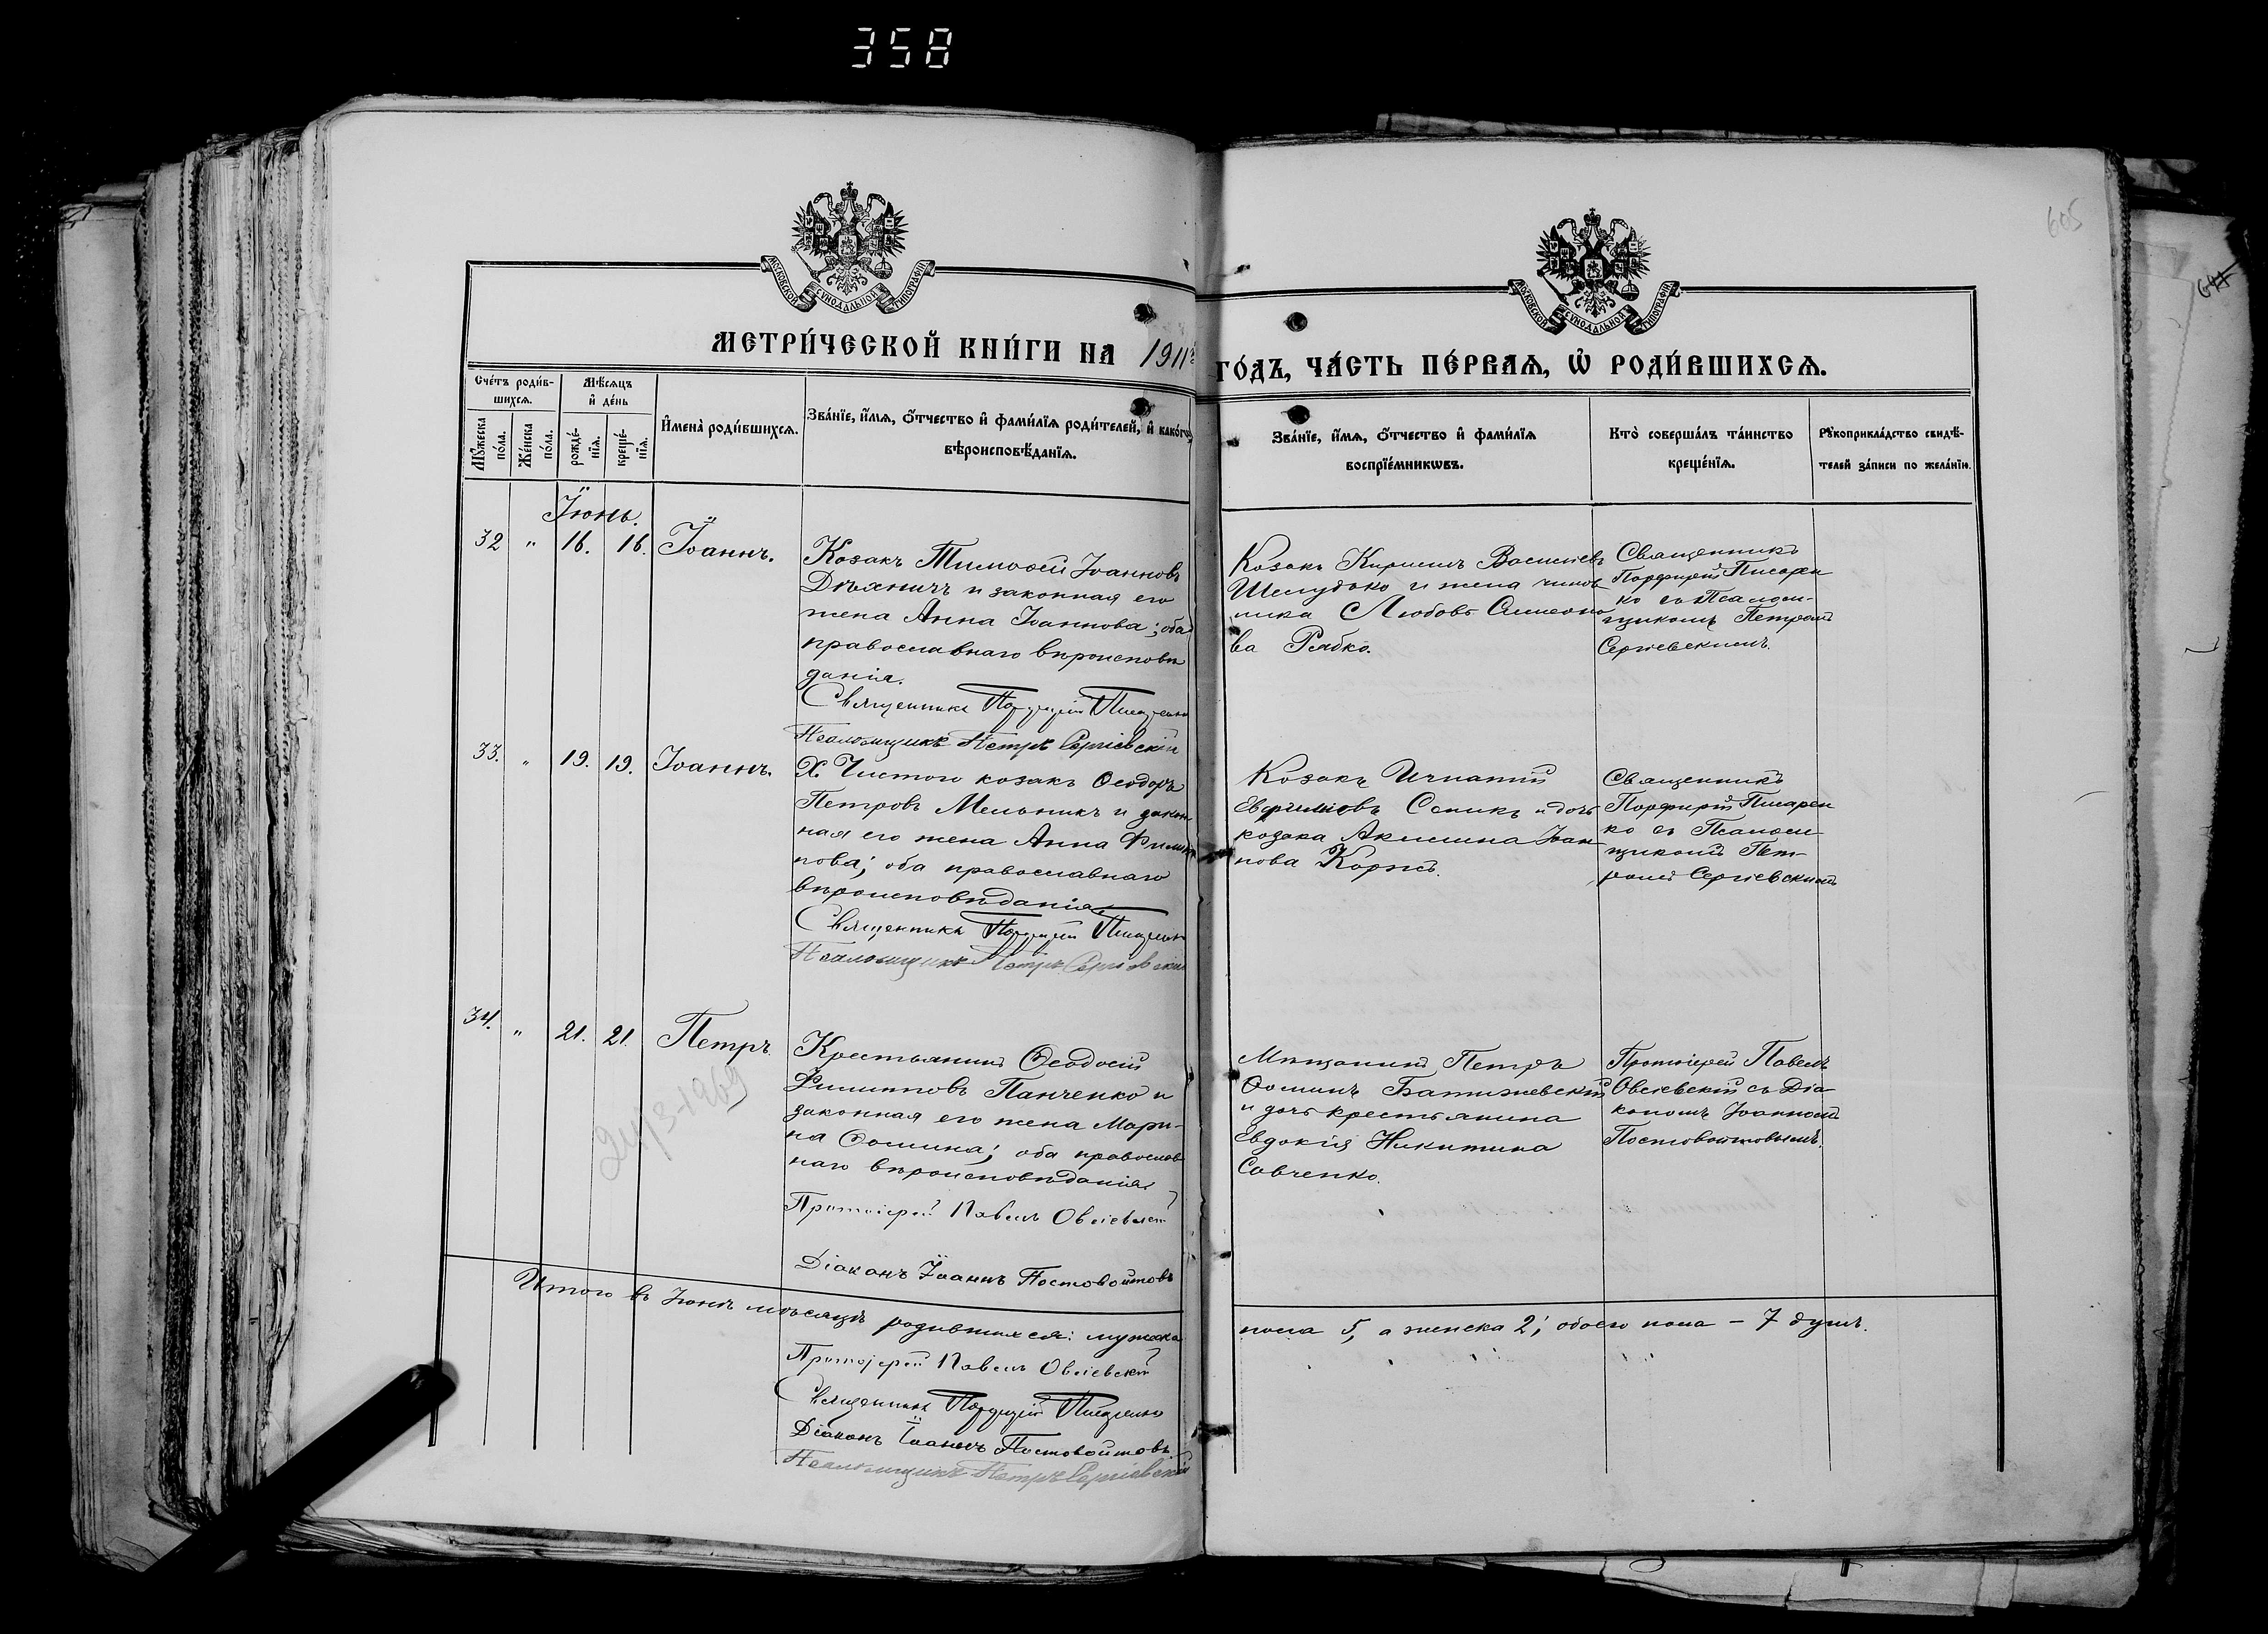 358
605
МОСКОВСКОЙ СѴНОДАЛЬНОЙ ТИПОГРАФІИ
МОСКОВСКОЙ СѴНОДАЛЬНОЙ ТИПОГРАФІИ
МЕТРИ́ЧЕСКОЙ КНИ́ГИ НА 1911й
ГО́ДЪ, ЧА́СТЬ ПЕ́РВАѦ, Ѡ҆ РОДИ́ВШИХСѦ.
Сче́тъ роди́в-
шихсѧ.
Мѹ́жеска по́ла.
Же́нска по́ла.
Мѣ́сѧцъ
и҆ де́нь
рожде́-
нїѧ.
креще́-
нїѧ.
И҆мена̀ роди́вшихсѧ.
Зва́нїе, и҆́мѧ, ѻ҆́тчество и҆ фами́лїѧ роди́телей, и҆ како́гѡ
вѣроисповѣ́данїѧ.
Зва́нїе, и҆́мѧ, ѻ҆́тчество и҆ фами́лїѧ
воспрїе́мникѡвъ.
Кто̀ соверша́лъ та́инство
креще́нїѧ.
Рѹкоприкла́дство свидѣ́-
телей за́писи по жела́нїю.
Іюнь.
32 " 16. 16. Іоаннъ.
Козакъ Тимоѳей Іоанновъ
Дѣяничъ и законная его
жена Анна Іоаннова; оба
православнаго вѣроисповѣ
данія.
Священникъ Порфирій Писаренко
Псаломщикъ Петръ Сергіевскій
Козакъ Кириллъ Васильевъ
Шелудько и жена чинов
ника Любовь Симеоно
ва Рябко.
Священникъ
Порфирій Писарен
ко съ Псалом-
щикомъ Петромъ
Сергіевскимъ.
33. " 19. 19. Іоаннъ.
Х. Чистого козакъ Ѳеодоръ
Петровъ Мельникъ и закон
ная его жена Анна Филип
пова; оба православнаго
вѣроисповѣданія.
Священникъ Порфирій Писаренко
Псаломщикъ Петръ Сергіевскій
Козакъ Игнатій
Евфиміевъ Сепикъ и дочь
козака Акилина Іоан
нова Коржъ.
Священникъ
Порфирій Писарен
ко съ Псалом
щикомъ Пет-
ромъ Сергіевскимъ
34. " 21. 21. Петръ.
24/3-1969
Крестьянинъ Ѳеодосій
Филипповъ Панченко и
законная его жена Мари-
на Ѳомина; оба православ
наго вѣроисповѣданія.
Протоіерей Павелъ Овсіевскій
Діаконъ Іоаннъ Постовойтовъ
Мѣщанинъ Петръ
Ѳоминъ Батижевскій
и дочь крестьянина
Евдокія Никитина
Савченко.
Протоіерей Павелъ
Овсіевскій съ Діа
кономъ Іоанномъ
Постовойтовымъ.
Итого въ Іюнѣ мѣсяцѣ родившихся: мужска
пола 5, а женска 2; обоего пола – 7 душъ.
Протоіерей Павелъ Овсіевскій
Священникъ Порфирій Писаренко
Діаконъ Іоаннъ Постовойтовъ
Псаломщикъ Петръ Сергіевскій